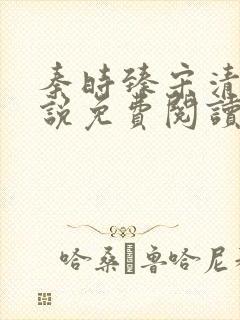 秦時臻宋清
說免費閱讀
哈桑·魯哈尼著